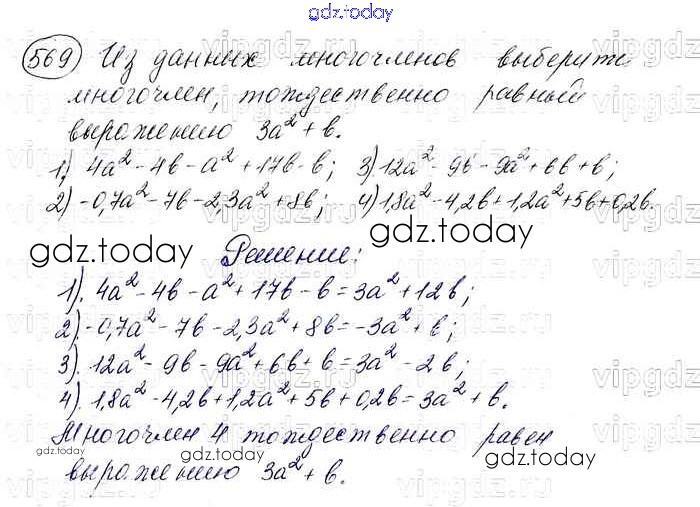 gdz.today
569 Из данных многочленов выберите
многочлен, тождественно равный
выражению 3a² + b.
1) 4a² - 4b - a² + 17b - b; 3) 12a² - 9b - 9a² + 6b + b;
2) -0,7a² - 7b - 2,3a² + 8b; 4) 1,8a² - 4,2b + 1,2a² + 5b + 0,2b.
gdz.today Решение: gdz.today
1). 4a² - 4b - a² + 17b - b = 3a² + 12b;
2). -0,7a² - 7b - 2,3a² + 8b = -3a² + b;
3). 12a² - 9b - 9a² + 6b + b = 3a² - 2b;
4). 1,8a² - 4,2b + 1,2a² + 5b + 0,2b = 3a² + b.
Многочлен 4 тождественно равен
gdz.today gdz.today
выражению 3a² + b.